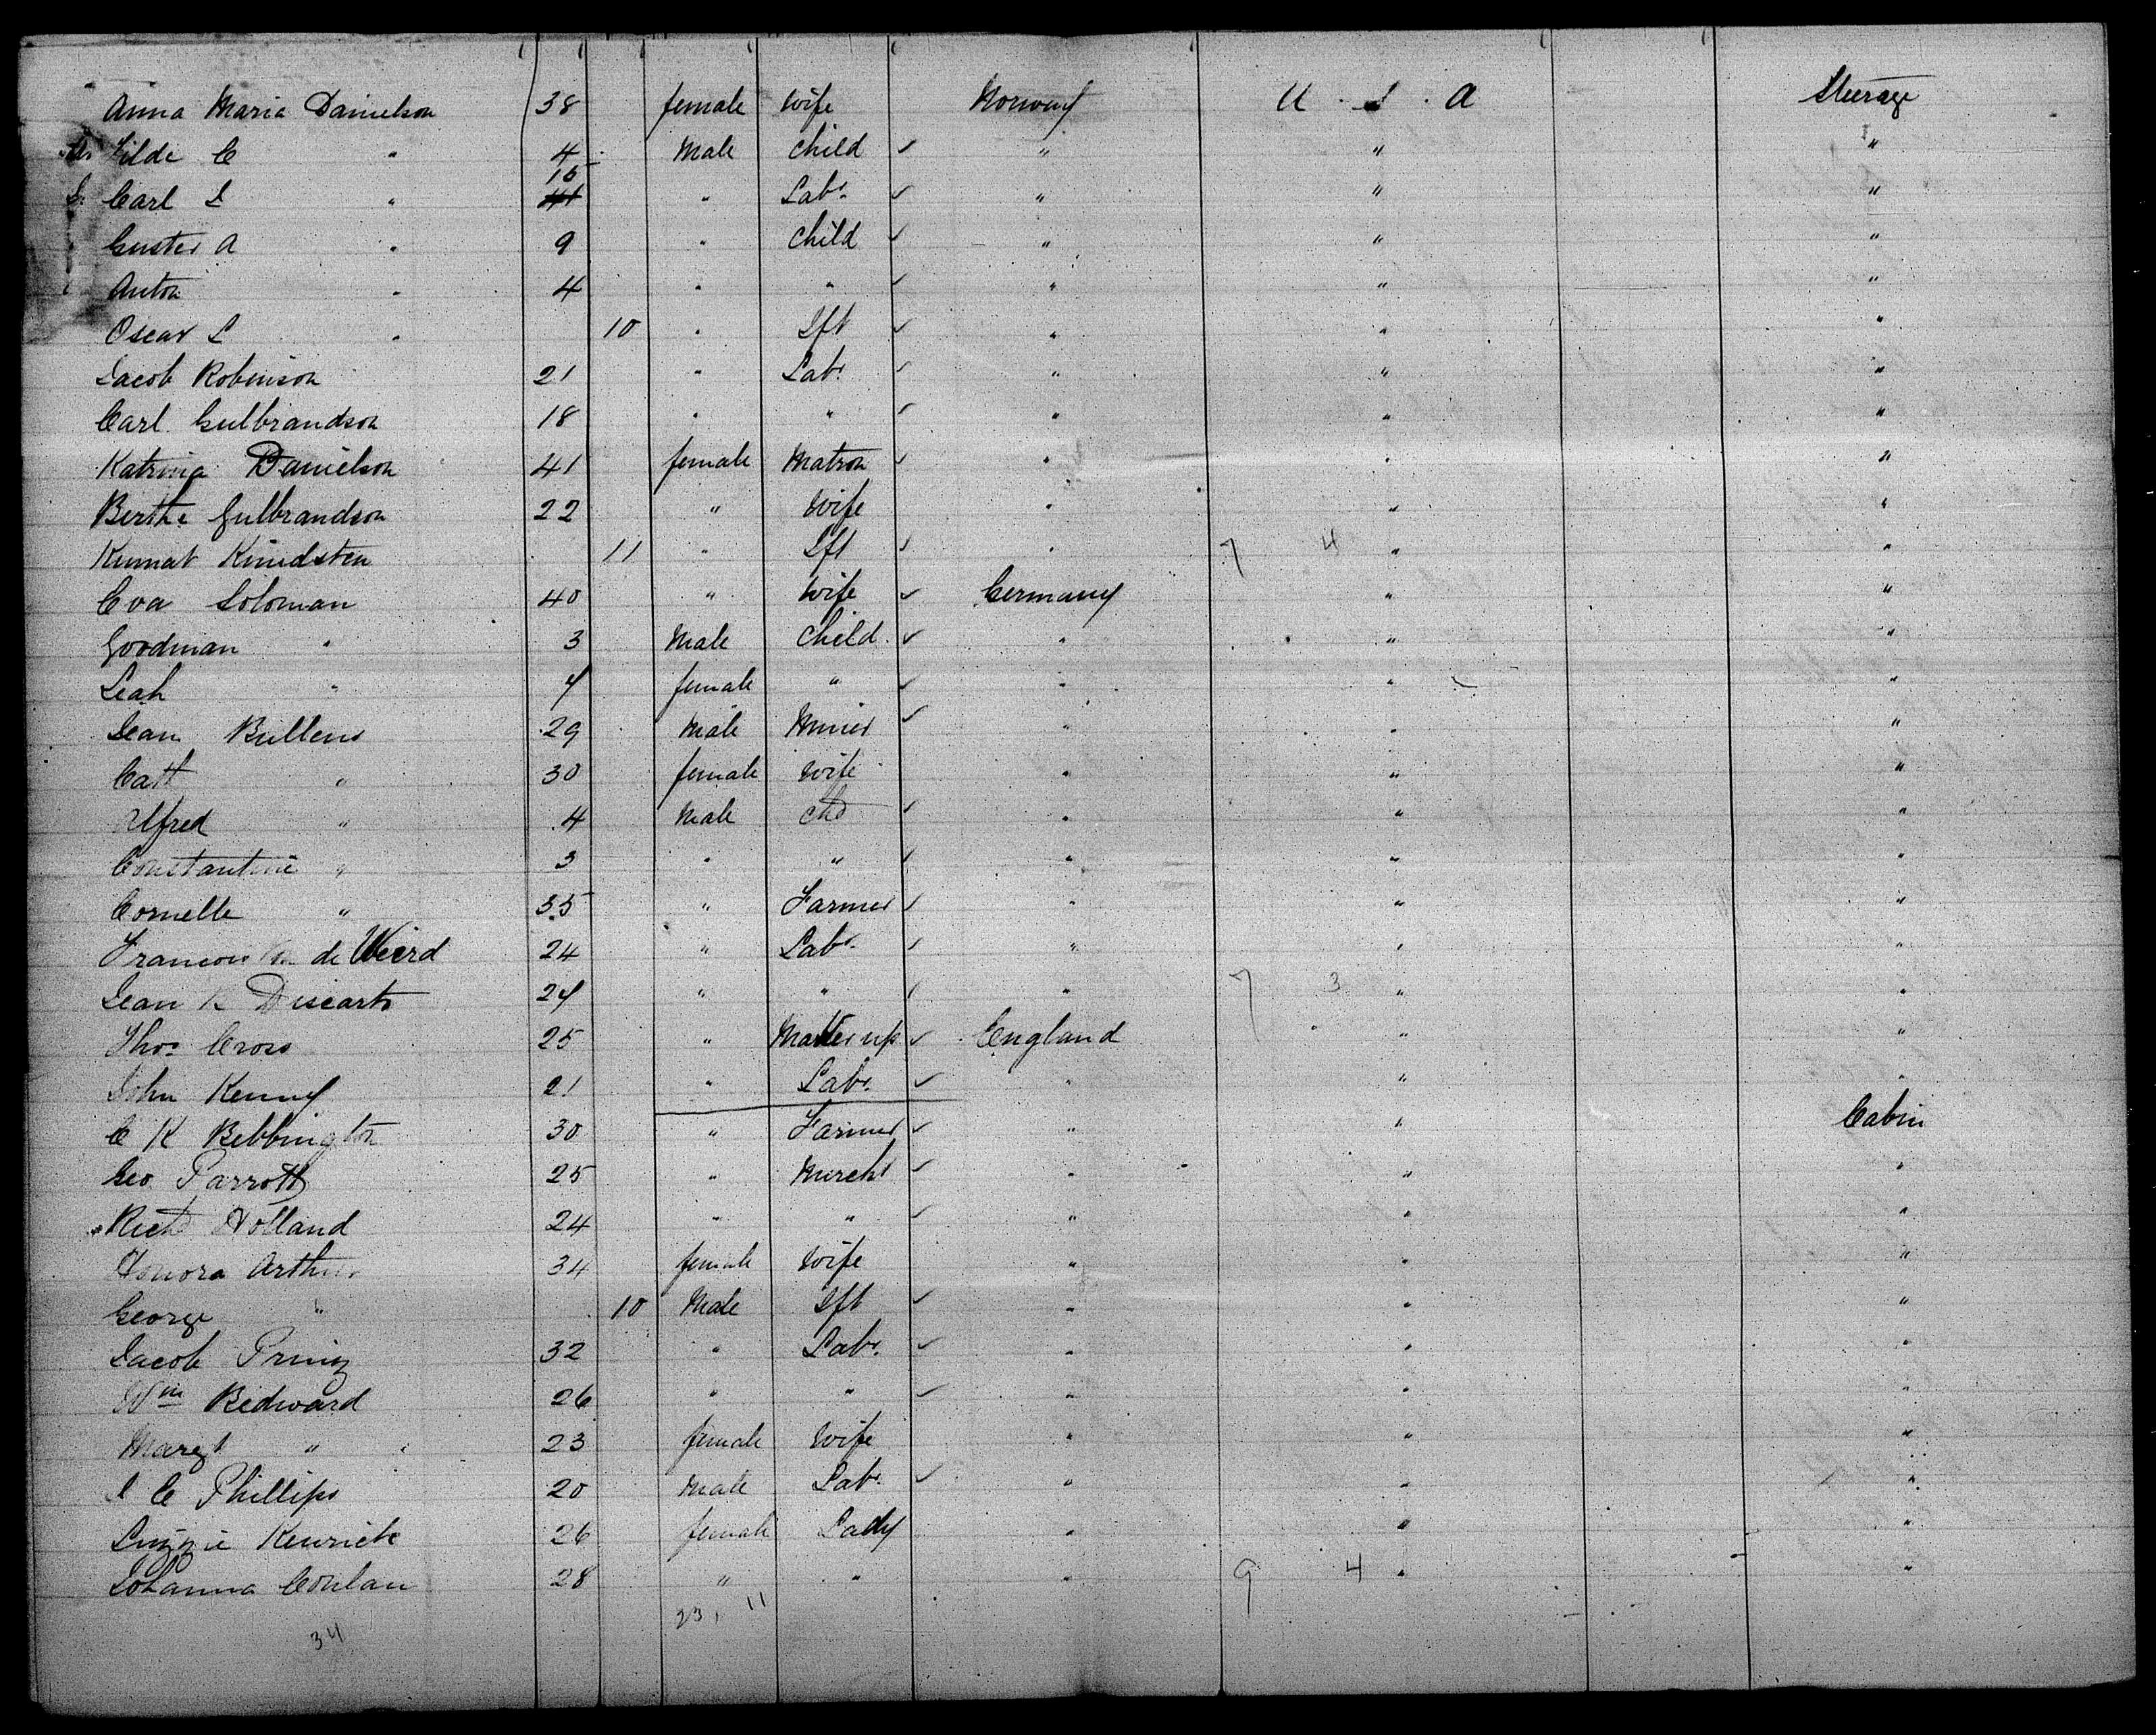 Anna Maria Danielson 38 female Wife Norway U. S. A Steerage
Hilde C " 4 Male Child ✓ " " "
Carl L " 15 " Labr ✓ " " "
Guster A " 9 " Child ✓ " " "
Anton " 4 " " ✓ " " "
Oscar L " 10 " Ift ✓ " " "
Jacob Robinson 21 " Labr ✓ " " "
Carl Gulbrandson 18 " " ✓ " " "
Katrina Danielson 41 female Matron ✓ " " "
Berthe Gulbrandson 22 " Wife " " "
Knudsten 11 " Ift ✓ " 7 4 " "
Eva Soloman 40 " Wife ✓ Germany " "
Goodman " 3 Male Child ✓ " " "
Leah " female " ✓ " " "
Jean Bullens 29 Male Miner ✓ " " "
Cath " 30 female Wife " " "
Alfred " 4 Male Chd ✓ " " "
Constantine " 3 " " ✓ " " "
Cornelle " 35 " Farmer ✓ " " "
Francois de Weerd 24 " Labr ✓ " " "
Jean Discarts " " ✓ " 7 3 " "
Thos Cross 25 " up ✓ England " "
John Kenny 21 " Labr ✓ " " "
C K Bebbington 30 " Farmer ✓ " " Cabin
Geo Parrott 25 " Mercht ✓ " " "
Richd Holland 24 " " ✓ " " "
Honora Arthur 34 female Wife " " "
George " 10 Male Ift ✓ " " "
Jacob Prinz 32 " Labr ✓ " " "
Wm Bedward 26 " " ✓ " " "
Margt " 23 female Wife " " "
J C Phillips 20 Male Labr ✓ " " "
Lizzie Kenrick 26 female Lady " " "
Johanna Conlan 28 " " " 9 4 " "
23, 11
34